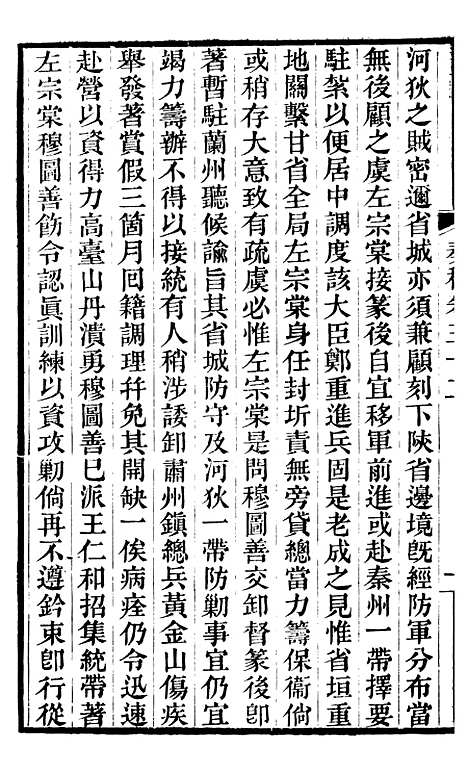 河狄之賊密邇省城亦須兼顧刻下陝省邊境旣經防軍分布當
無後顧之虞左宗棠接篆後自宜移軍前進或赴秦州一帶擇要
駐紮以便居中調度該大臣鄭重進兵固是老成之見惟省垣重
地關繫甘省全局左宗棠身任封圻責無旁貸總當力籌保衞倘
或稍存大意致有疏虞必惟左宗棠是問穆圖善交卸督篆後卽
著暫駐蘭州聽候諭旨其省城防守及河狄一帶防勦事宜仍宜
竭力籌辦不得以接統有人稍涉諉卸肅州鎭總兵黃金山傷疾
舉發著賞假三箇月回籍調理幷免其開缺一俟病痊仍令迅速
赴營以資得力高臺山丹潰勇穆圖善已派王仁和招集統帶著
左宗棠穆圖善飭令認眞訓練以資攻勦倘再不遵鈐束卽行從